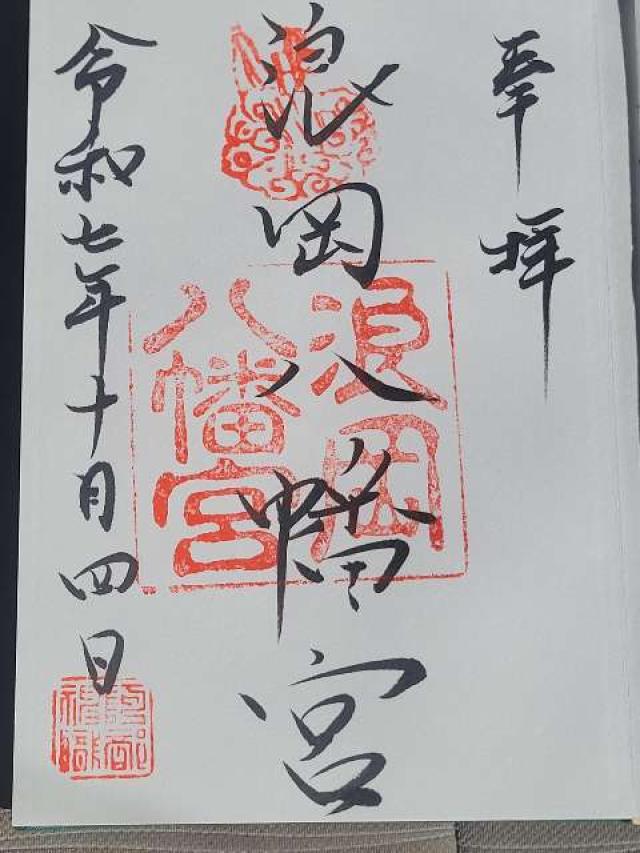 奉拝
浪岡八幡宮
浪岡
八幡宮
令和七年十月四日